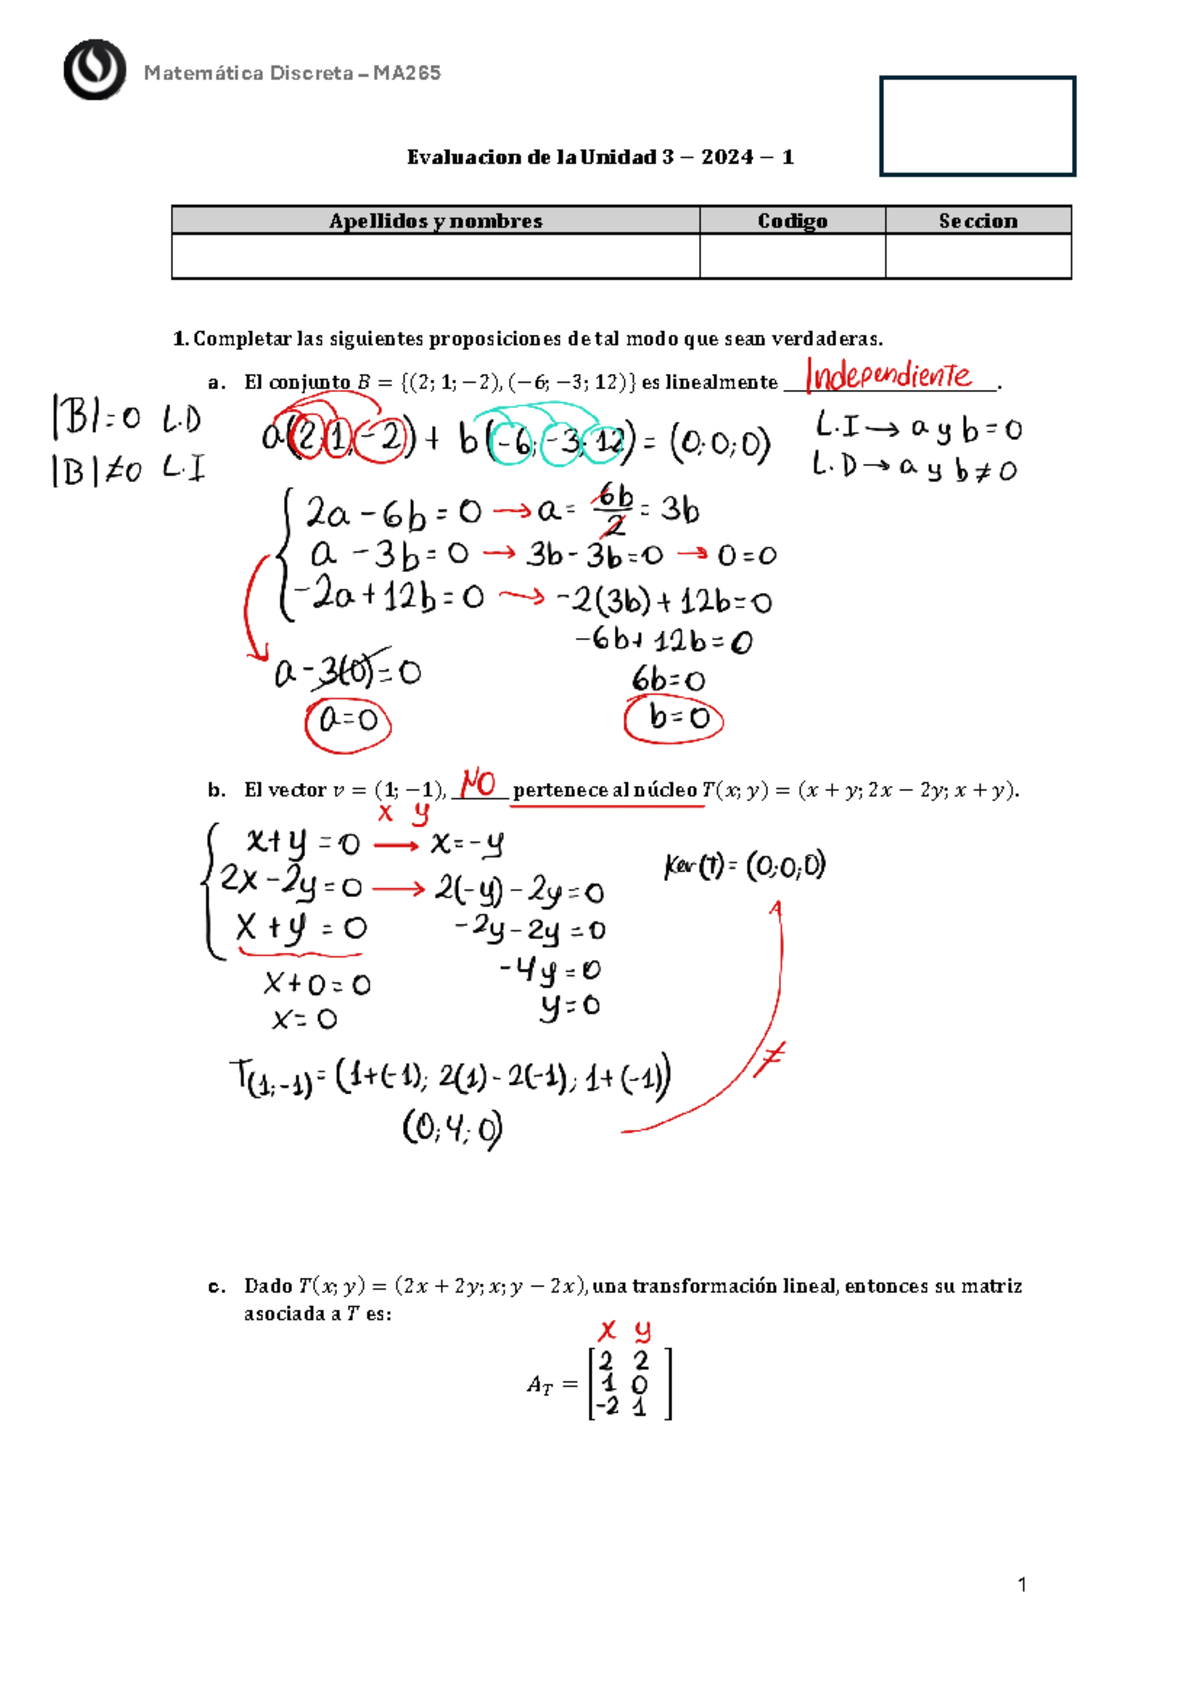 Matemática Discreta – MA265
Evaluacion de la Unidad 3 – 2024 – 1
Apellidos y nombres Codigo Seccion
1. Completar las siguientes proposiciones de tal modo que sean verdaderas.
a. El conjunto B = {(2; 1; −2), (−6; −3; 12)} es linealmente Independiente.
|B|=0 L.D
|B|≠0 L.I
a(2;1;-2) + b(-6;-3;12) = (0;0;0)
L.I → a y b = 0
L.D → a y b ≠ 0
2a - 6b = 0 → a = 6b/2 = 3b
a - 3b = 0 → 3b - 3b = 0 → 0 = 0
-2a + 12b = 0 → -2(3b) + 12b = 0
-6b + 12b = 0
a - 3(0) = 0
6b = 0
a = 0
b = 0
b. El vector v = (1; −1), NO pertenece al núcleo T(x; y) = (x + y; 2x − 2y; x + y).
x y
x + y = 0 → x = -y
Ker(T) = (0;0;0)
2x - 2y = 0 → 2(-y) - 2y = 0
x + y = 0
-2y - 2y = 0
-4y = 0
x + 0 = 0
y = 0
x = 0
≠
T(1;-1) = (1+(-1); 2(1) - 2(-1); 1+(-1))
(0; 4; 0)
c. Dado T(x; y) = (2x + 2y; x; y − 2x), una transformación lineal, entonces su matriz
asociada a T es:
x y
2 2
A_T = 1 0
-2 1
1